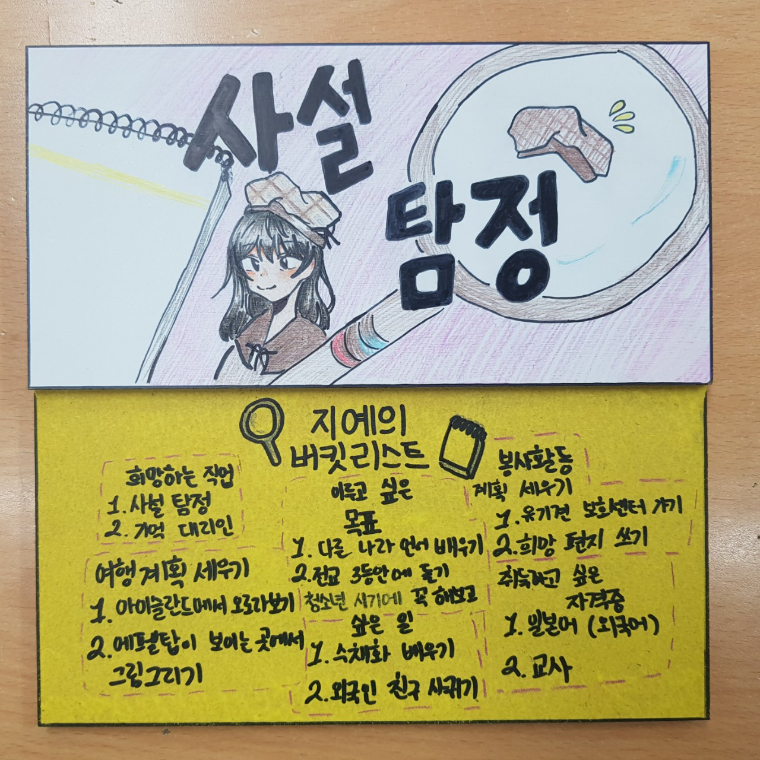 사설
탐정
지예의
버킷리스트
희망하는 직업
1. 사설 탐정
2. 기억 대리인
여행 계획 세우기
1. 아이슬란드에서 오로라보기
2. 에펠탑이 보이는 곳에서
그림그리기
이루고 싶은
목표
1. 다른 나라 언어 배우기
2. 전교 3등안에 들기
청소년 시기에 꼭 해보고
싶은 일
1. 수채화 배우기
2. 외국인 친구 사귀기
봉사활동
계획 세우기
1. 유기견 보호센터 가기
2. 희망 편지 쓰기
취득하고 싶은
자격증
1. 일본어 (외국어)
2. 교사